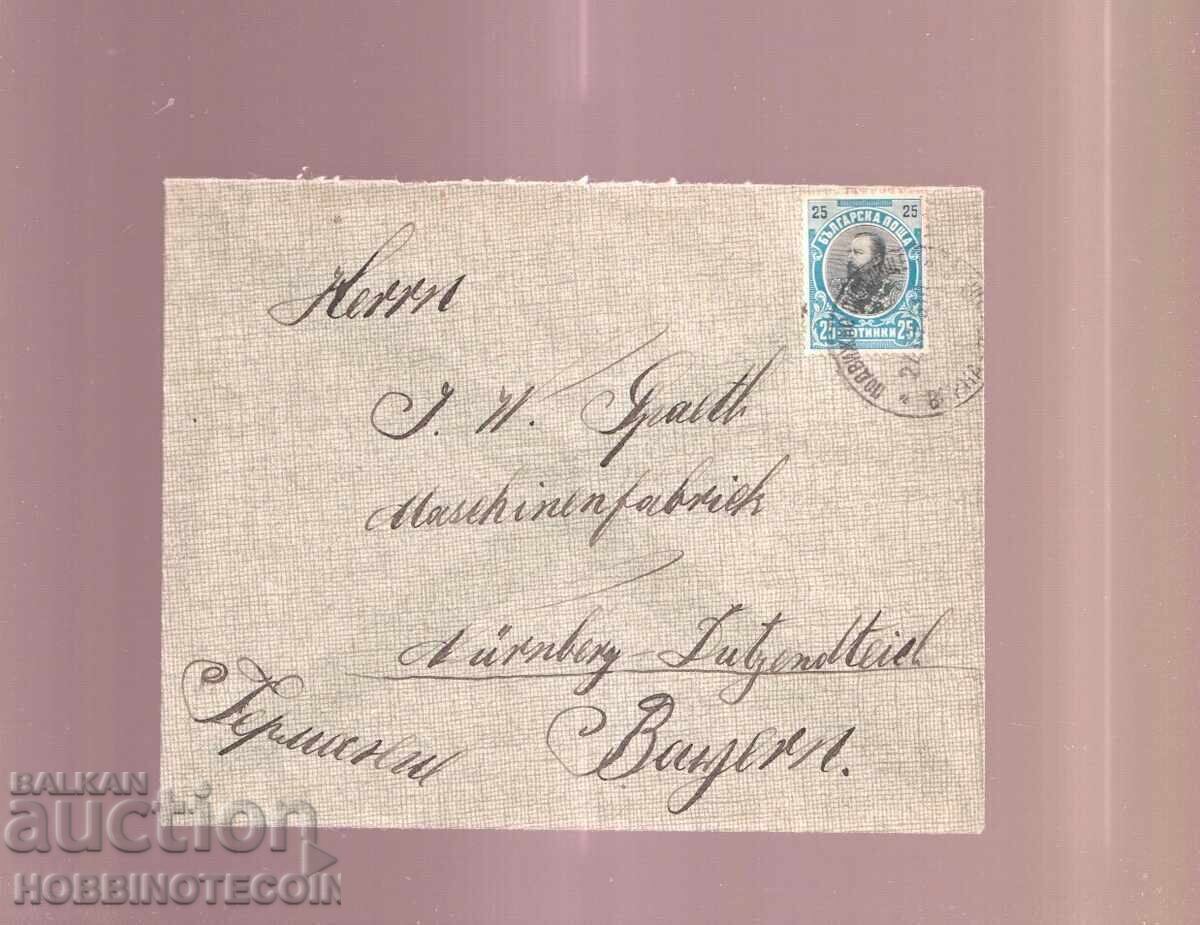 25 25
БЪЛГАРСКА ПОЩА
25 СТОТИНКИ 25
Herrn
J. W. Spaeth
Maschinenfabriek
Nürnberg-Dutzendteich
Германия
Bayern.
BALKAN
auction
HOBBINOTECOIN